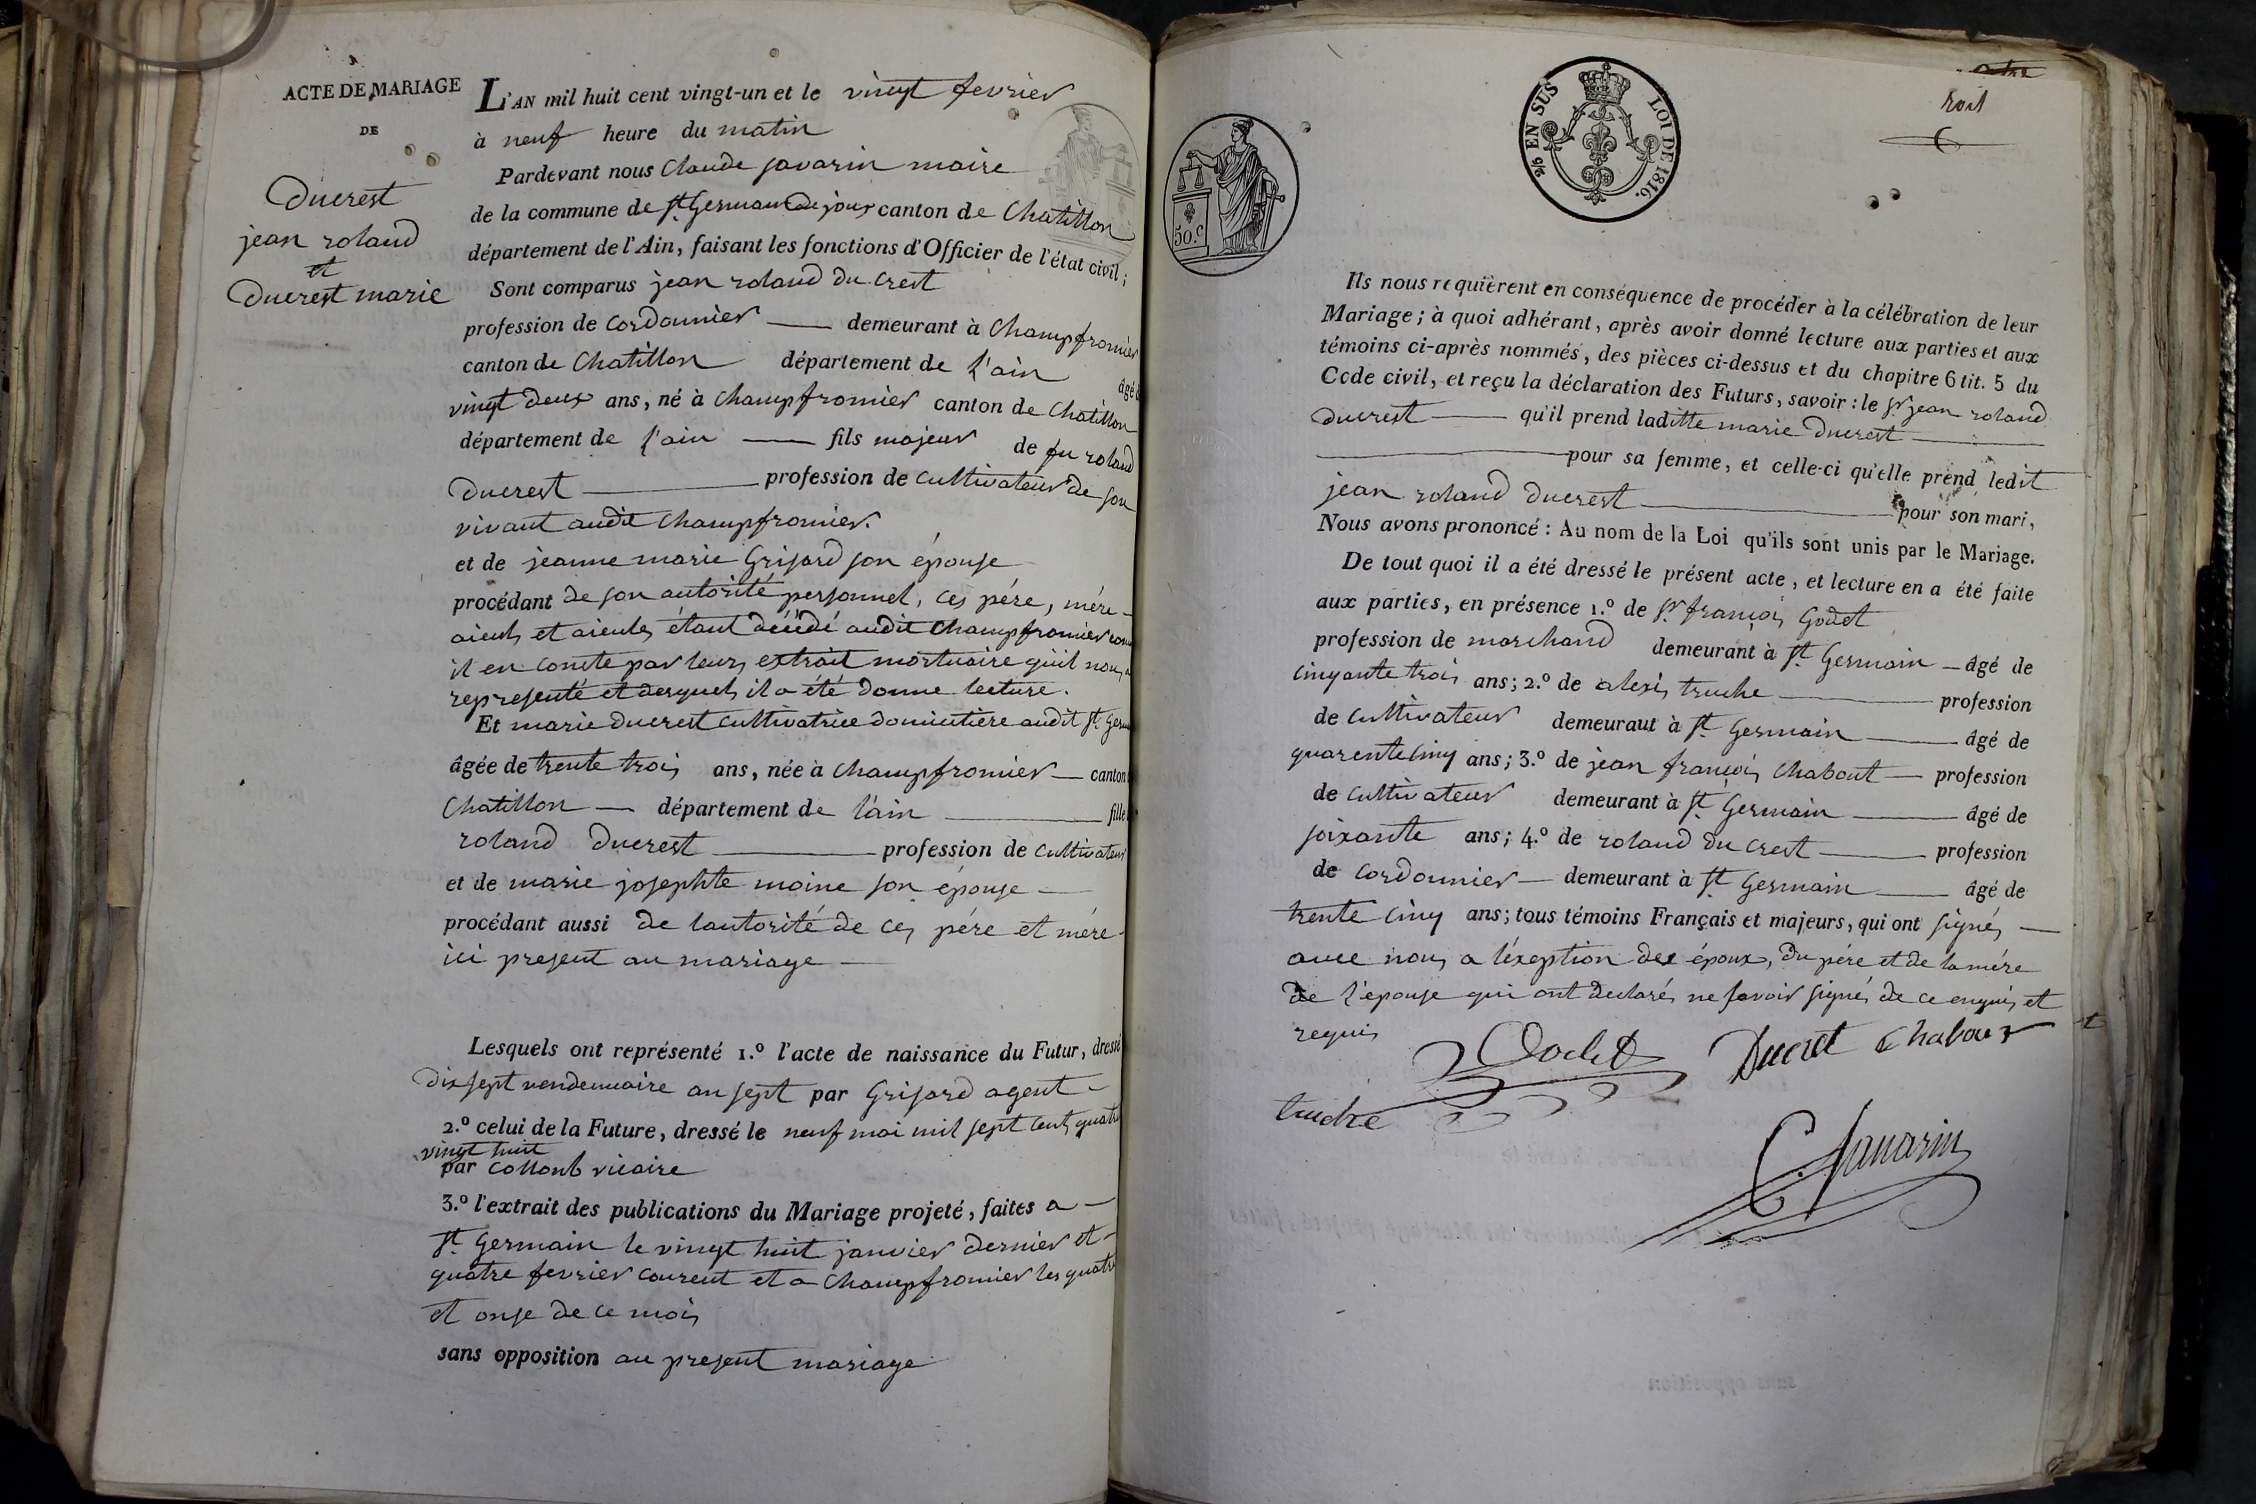 ACTE DE MARIAGE
DE
Ducrest
jean roland
et
Ducrest marie
L'AN mil huit cent vingt-un et le vingt fevrier
à neuf heure du matin
Pardevant nous Claude savarin maire
de la commune de St. Germain De joux canton de Chatillon
département de l'Ain, faisant les fonctions d'Officier de l'état civil;
Sont comparus jean roland du Crest
profession de cordonnier demeurant à Champfromier
canton de Chatillon département de l'ain âgé
vingt deux ans, né à Champfromier canton de Chatillon
département de l'ain fils majeur de fu roland
Ducrest profession de cultivateur de son
vivant audit Champfromier.
et de jeanne marie Grisard son épouse
procédant de son autorité personnel, ces pére, mére
aieuls et aieules étant décédé audit Champfromier
il en conste par leurs extrait mortuaire qu'il nous
representé et desquels il a été donne lecture.
Et marie Ducrest cultivatrice domicitiere audit St.
âgée de trente trois ans, née à Champfromier canton
Chatillon département de l'ain fille
roland Ducrest profession de cultivateur
et de marie josephte moine son épouse
procédant aussi de lautorité de ces pére et mére
ici present au mariage
Lesquels ont représenté 1.º l'acte de naissance du Futur, dressé
Dix sept vendemiaire an sept par Grisard agent
2.º celui de la Future, dressé le neuf mai mil sept cents quatre
vingt huit
par Collomb vicaire
3.º l'extrait des publications du Mariage projeté, faites a
St. Germain le vingt huit janvier dernier et
quatre fevrier courent et a Champfromier les quatre
et onse de ce mois
sans opposition au present mariage
2/5 EN SUS LOI DE 1816.
50.c
huit
Ils nous requièrent en conséquence de procéder à la célébration de leur
Mariage; à quoi adhérant, après avoir donné lecture aux parties et aux
témoins ci-après nommés, des pièces ci-dessus et du chapitre 6 tit. 5 du
Code civil, et reçu la déclaration des Futurs, savoir: le Sr jean roland
Ducrest qu'il prend laditte marie Ducrest
pour sa femme, et celle-ci qu'elle prend ledit
jean roland Ducrest pour son mari,
Nous avons prononcé: Au nom de la Loi qu'ils sont unis par le Mariage.
De tout quoi il a été dressé le présent acte, et lecture en a été faite
aux parties, en présence 1.º de Sr. françois Godet
profession de marchand demeurant à St. Germain âgé de
cinquante trois ans; 2.º de alexis truche profession
de cultivateur demeurant à St. Germain âgé de
quarente cinq ans; 3.º de jean françois Chabout profession
de cultivateur demeurant à St. Germain âgé de
soixante ans; 4.º de roland du Crest profession
de cordonnier demeurant à St. Germain âgé de
trente cinq ans; tous témoins Français et majeurs, qui ont signés
avec nous a l'éxeption des époux, du pére et de la mére
de l'epouse qui ont declarés ne savoir signés de ce enquis et
requis
Godet Ducret Chaboux
truche
C. Savarin